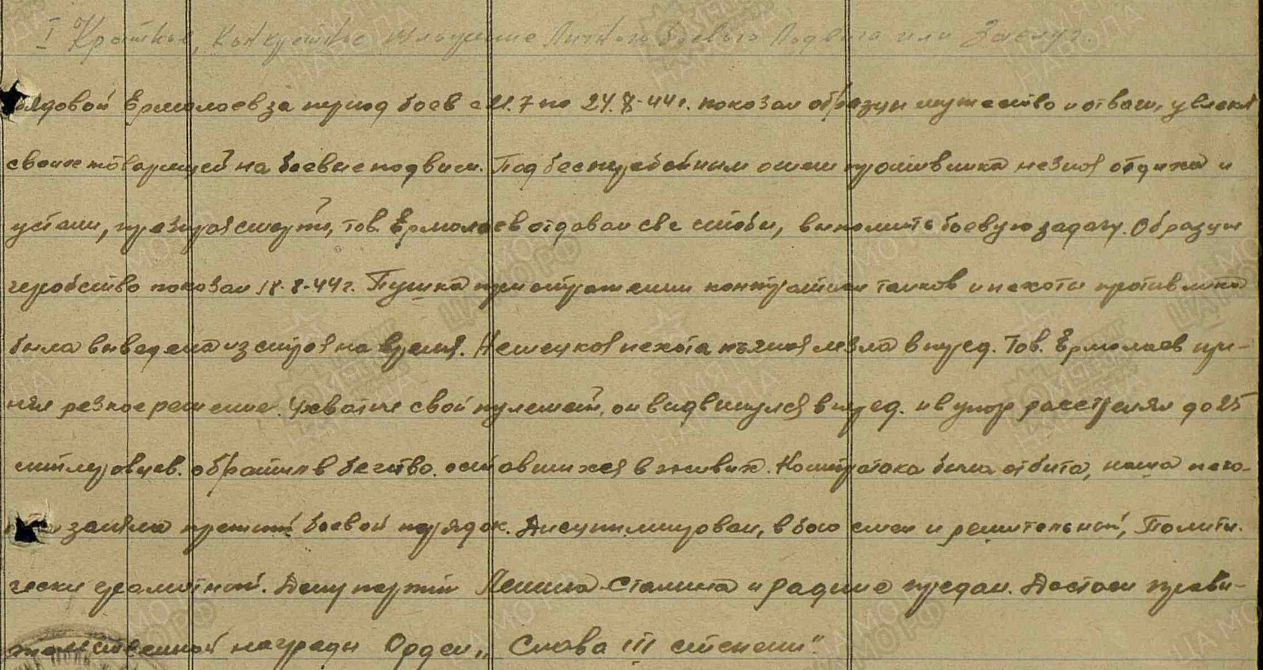 I Краткое, конкретное изложение личного боевого подвига или заслуг.
рядовой Ермолаев за период боев с 21.7 по 24.8-44 г. показал образцы мужество и отваги, увлекая
своих товарищей на боевые подвиги. Под бесперебойным огнем противника не зная отдыха и
устали, презирая смерть, тов. Ермолаев отдавал све чтобы, выполнить боевую задачу. Образцы
геройство показал 18.8-44 г. Пушка при отражении контратаки танков и пехоты противника
была выведена из строя на время. Немецкая пехота пьяная лезла вперед. Тов. Ермолаев при-
нял резкое решение. Ухватив свой пулемет, он выдвинулся вперед. и в упор расстрелял до 25
гитлеровцев. обратив в бегство. оставшихся в живых. Контратака была отбита, наша пехо-
та заняла прежний боевой порядок. Дисциплинирован, в бою смел и решительный, Полити-
чески грамотный. Делу партии Ленина-Сталина и родине предан. Достоин прави-
тельственной награды Орден "Слава III степени"